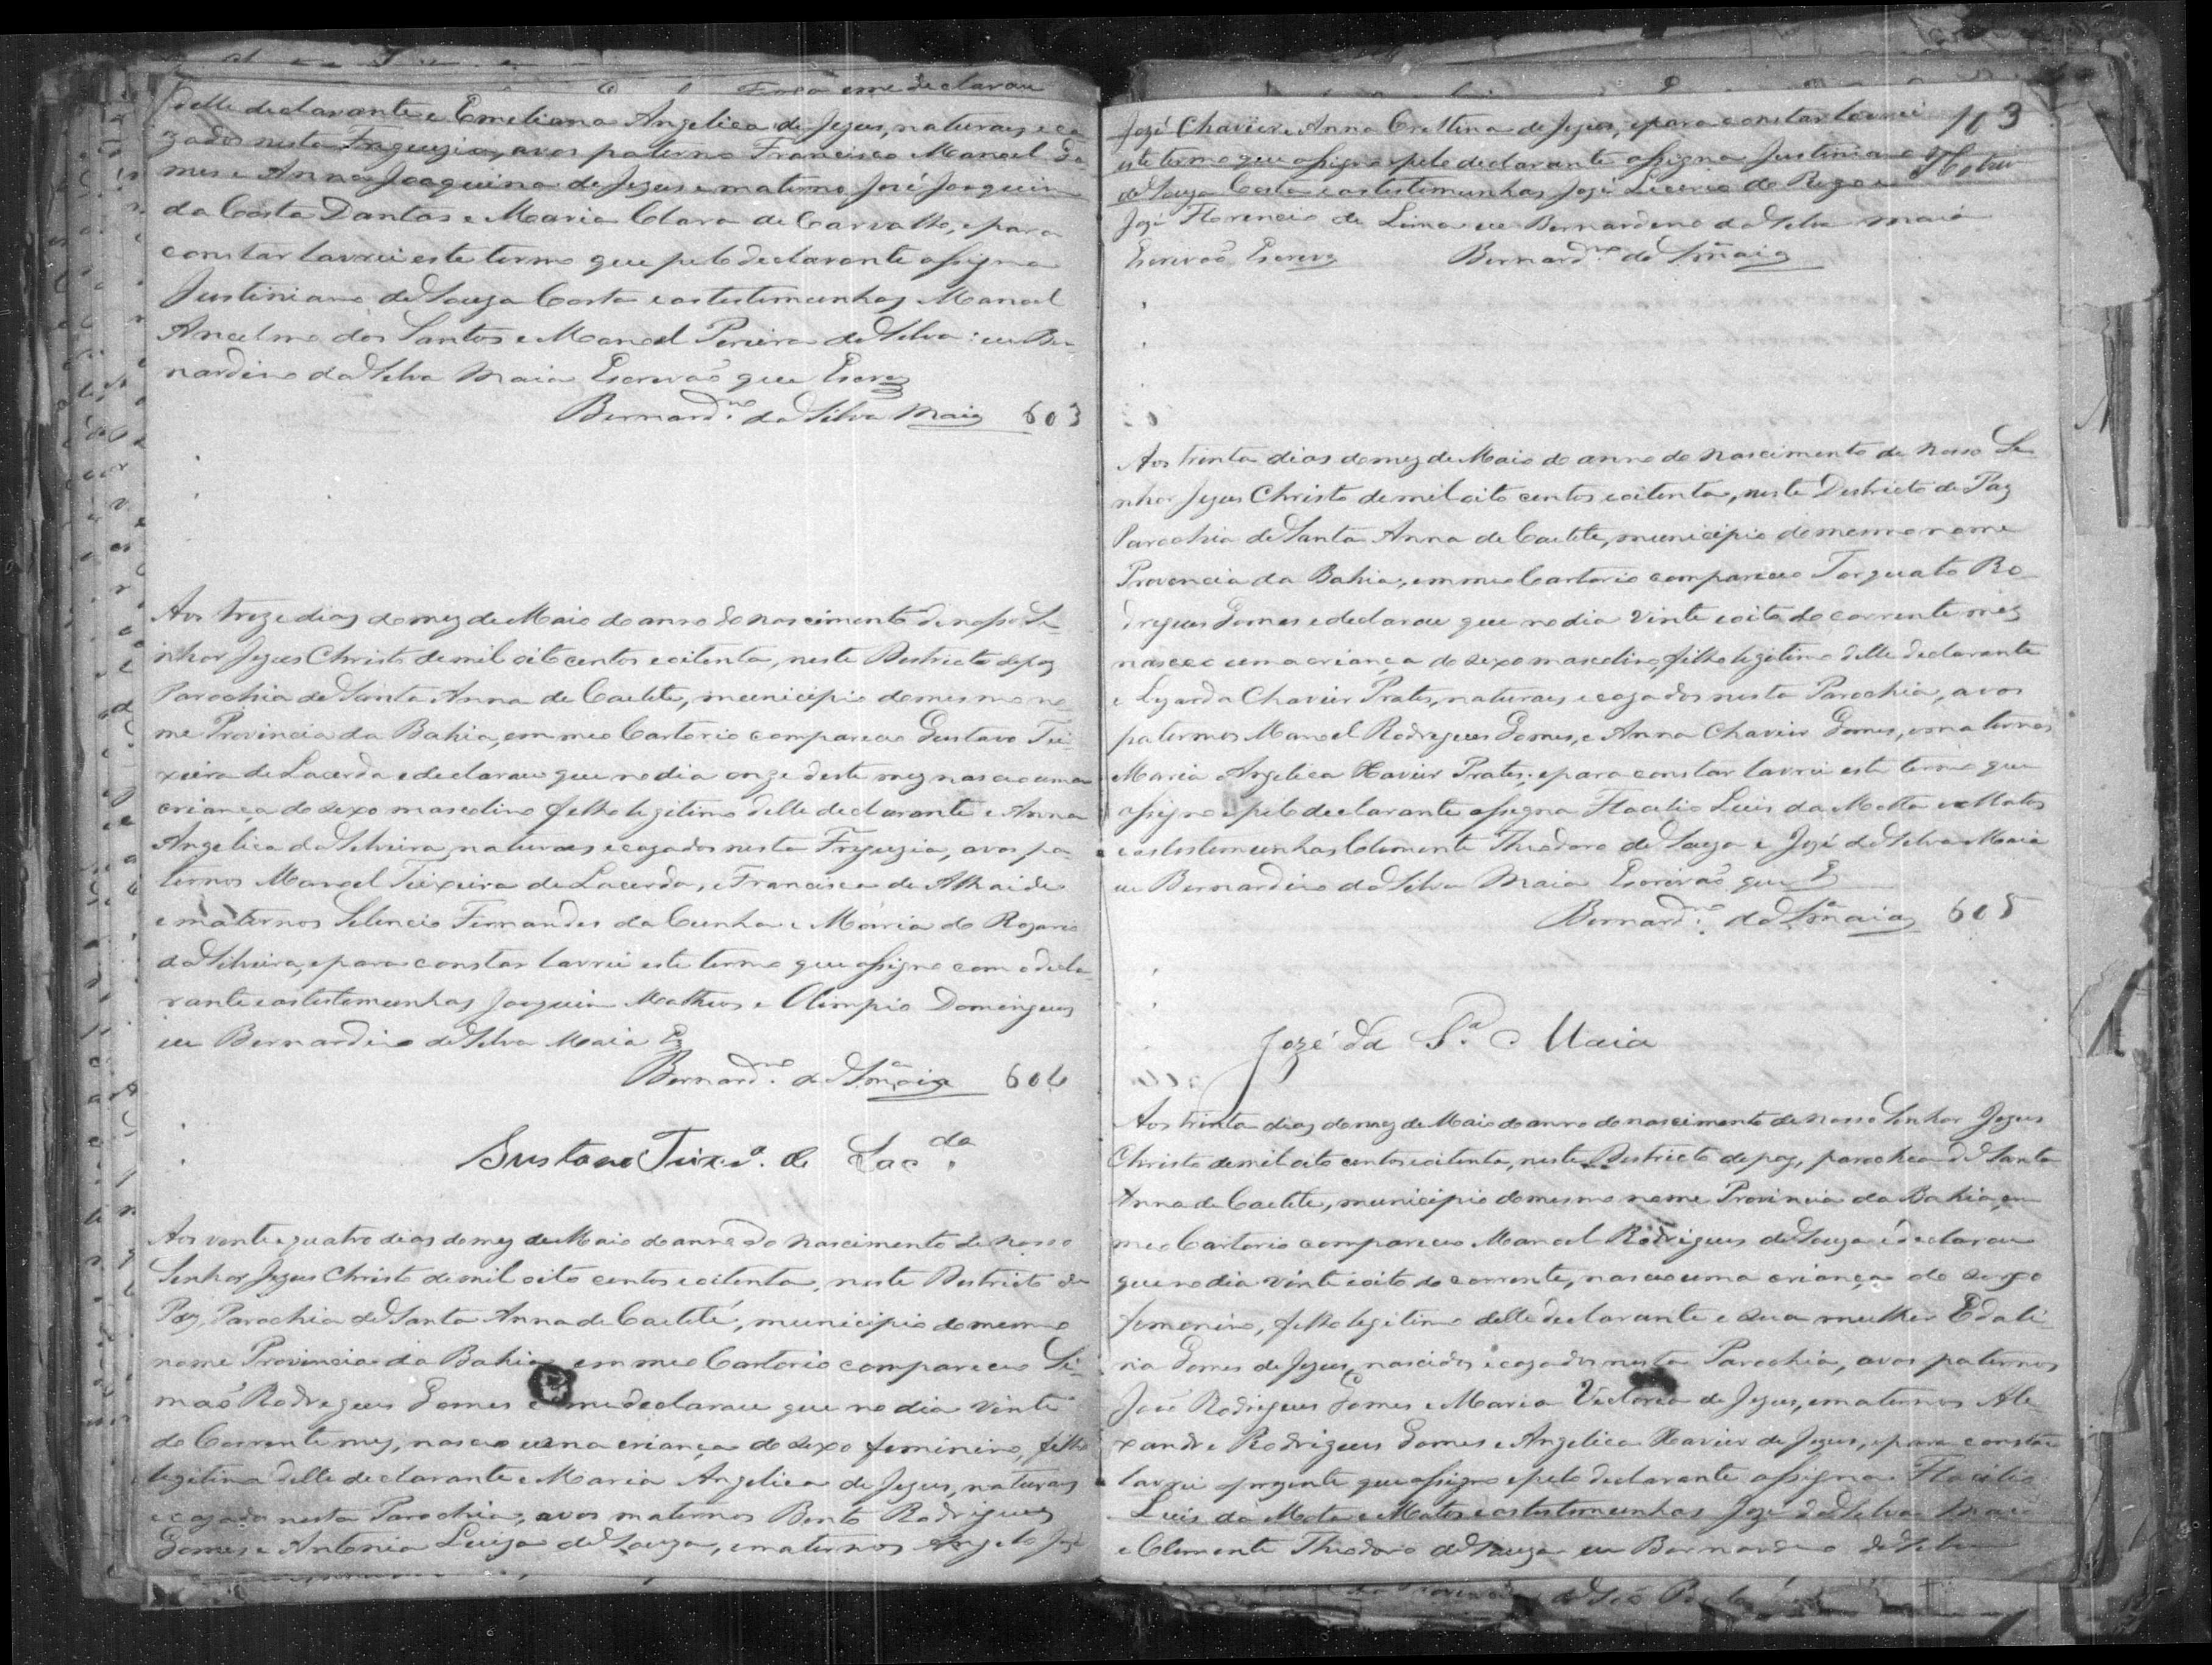 delle declarante e Emeliana Angelica de Jezus, naturaes e ca
zados nesta Freguezia, avos paterno Francisco Manoel Go
mes e Anna Joaquina de Jezus e materno José Joaquim
da Costa Dantas e Maria Clara de Carvalho, e para
constar lavrei este termo que pelo declarante assigna
Justiniano de Souza Costa e as testimunhas Manoel
Ancelmo dos Santos e Manoel Pereira da Silva: eu Ber
nardino da Silva Maia Escrivaõ que Escrevy
Bernard.no da Silva Maia 603
Aos treze dias do mez de Maio do anno do nascimento de nosso Se
nhor Jezus Christo de mil oito centos e oitenta, neste Destricto de paz
Parochia de Santa Anna de Caetite, municipio do mesmo no
me Provincia da Bahia, em meo Cartorio compareceo Gustavo Tei
xeira de Lacerda e declarou que no dia onze deste mez nasceo uma
criança do sexo mascolino filho legitimo delle declarante e Anna
Angelica da Silveira, naturaes e cazados nesta Freguezia, avos pa
ternos Manoel Teixeira de Lacerda, e Francisca de Athaide
e maternos Silencio Fernandes da Cunha e Maria do Rozario
da Silveira, e para constar lavrei este termo que assigno com o decla
rante e as testemunhas Joaquim Matheos e Olimpio Domingues
eu Bernardino da Silva Maia E
Bernard.no da S.a Maia 604
Gustavo Teix.a de Lac.da
Aos vente e quatro dias do mez de Maio do anno do nascimento de nosso
Senhor Jezus Christo de mil oito centos e oitenta, neste Destricto de
Paz, Parochia de Santa Anna de Caetité, municipio do mesmo
nome Provincia da Bahia em meo Cartorio compareceo Si
maõ Rodregues Gomes e me declarou que no dia vinte
do Corrente mez, nasceo uma criança do sexo feminino, filha
legitima delle declarante e Maria Angelica de Jezus, naturaes
e cazados nesta Parochia, avos maternos Bento Rodrigues
Gomes e Antonia Luiza de Souza, e maternos Angelo José
103
José Chavier e Anna Crestina de Jezus, e para constar lavrei
este termo que assigno e pelo declarante assigna Justiniano
de Souza Costa e as testemunhas José Licerio do Rego e
José Florencio de Lima eu Bernardino da Silva Maia
Escrivaõ Escrevy Bernard.no da S.a Maia
Aos trinta dias do mez de Maio do anno do Nascimento de Nosso Se
nhor Jezus Christo de mil oito centos e oitenta, neste Destricto de Paz
Parochia de Santa Anna de Caetite, municipio do mesmo nome
Provencia da Bahia, em meo Cartorio compareceo Torquato Ro
dregues Gomes e declarou que no dia vinte e oito do corrente mez
nasceo uma criança do sexo mascolino, filho legitimo delle declarante
e Lyzarda Chavier Prates, naturaes e cazados nesta Parochia, avos
paternos Manoel Rodregues Gomes, e Anna Chavier Gomes, e maternos
Maria Angelica Xavier Prates; e para constar lavrei este termo que
assigno e pelo declarante assigna Flacilio Luis da Motta e Matos
e as testemunhas Clemente Theodoro de Souza e José da Silva Maia
eu Bernardino da Silva Maia Escrivaõ que E
Bernard.no da S.a Maia 605
Jozé da S.a Maia
Aos trinta dias do mez de Maio do anno do nascimento de nosso Senhor Jezus
Christo de mil oito centos e oitenta, neste Destricto de paz, parochia de Santa
Anna de Caetite, municipio do mesmo nome Provincia da Bahia, em
meo Cartorio compareceo Manoel Rodrigues de Souza e declarou
que no dia vinte e oito do corrente, nasceo uma criança do sexo
femenino, filha legitima delle declarante e sua mulher Edali
na Gomes de Jezus, nascidos e cazados nesta Parochia, avos paternos
José Rodrigues Gomes e Maria Victoria de Jezus, e maternos Ale
xandre Rodrigues Gomes e Angelica Xavier de Jezus, e para constar
lavrei o prezente que assigno e pelo declarante assigna Flacilio
Luis da Mota e Matos e as testemunhas Jozé da Silva Maia
e Clemente Theodoro de Souza eu Bernardino da Silva